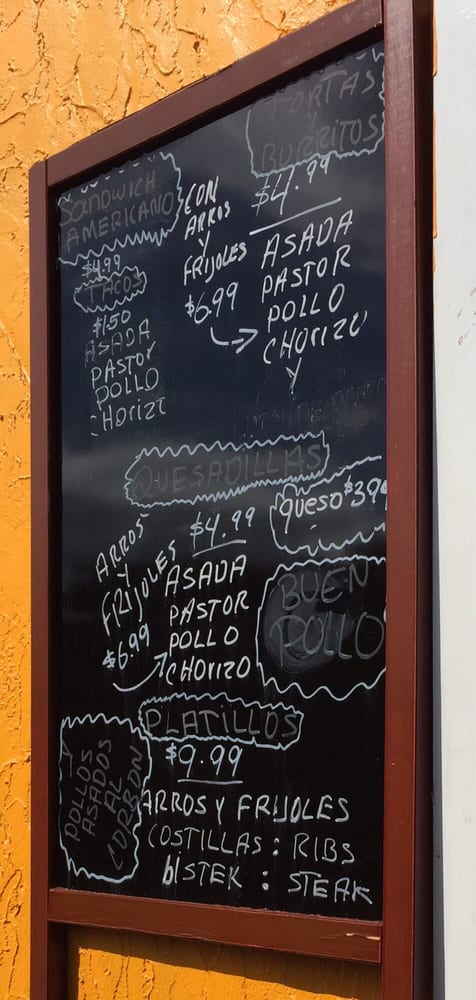 SANDWICH
AMERICANO
$4.99
TACOS
$1.50
ASADA
PASTOR
POLLO
CHORIZO
CON
ARROS
Y
FRIJOLES
$6.99
TORTAS
Y
BURRITOS
$4.99
ASADA
PASTOR
POLLO
CHORIZO
Y
QUESADILLAS
$4.99
queso $3.99
ARROS
Y
FRIJOLES
$6.99
ASADA
PASTOR
POLLO
CHORIZO
BUEN
POLLO
PLATILLOS
$9.99
ARROS Y FRIJOLES
COSTILLAS : RIBS
bISTEK : STEAK
Y
POLLOS
ASADOS
AL
CORBON